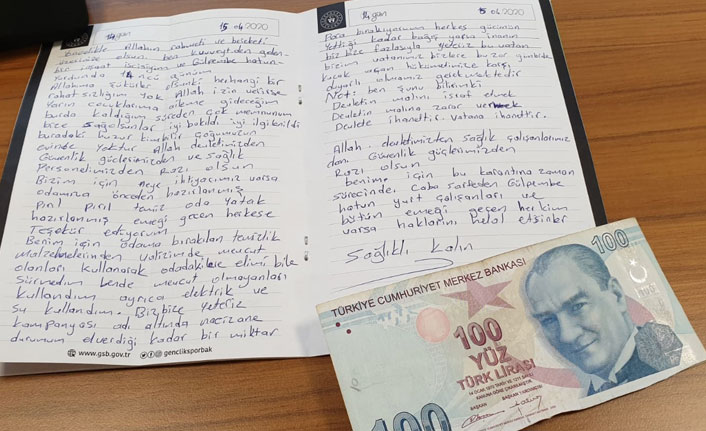 14. gün 15.04.2020
Öncelikle Allahın rahmeti ve bereketi
üzerinize olsun. ben kuveyt'den gelen
bir inşaat işcisiyim ve Gülpembe hatun
Yurdunda 14 üncü günüm
Allahıma şükürler olsunki herhangi bir
rahatsızlığım Yok Allah izin verirse
Yarın çocuklarıma aileme gideceğim
burda kaldığım süreden çok memnunum
bize sağolsunlar iyi bakıldı iyi ilgilenildi
buradaki huzur kimbilir çoğumuzun
evinde Yoktur Allah devletimizden
Güvenlik güçlerimizden ve sağlık
Personelimizden Razı olsun
Bizim için neye ihtiyacımız varsa
odamıza önceden hazırlanmış
Pırıl Pırıl temiz oda Yatak
hazırlanmış emeği geçen herkese
Teşekür ediyorum
Benim için odama bırakılan temizlik
malzemelerinden valizimde mevcut
olanları kullanarak odadakilere elimi bile
sürmedim bende mevcut olmayanları
kullandım ayrıca elektrik ve
su kullandım. Biz bize Yeteriz
kampanyası adı altında nacizane
durumun elverdiği kadar bir miktar
www.gsb.gov.tr gencliksporbak
14 gün 15.04.2020
Para bırakıyorum herkes gücünün
Yettiği kadar bağış yaparsa inanın
biz bize fazlasıyla Yeteriz bu vatan
bizim vatanımız bizlere bu zor günümüzde
kucak açan hükümetimize karşı
duyarlı olmamız gerekmektedir
Net: ben şunu bilirimki
Devletin malını israf etmek
Devletin malına zarar vermek
Devlete ihanettir. Vatana ihanettir.
Allah. devletimizden sağlık çalışanlarımız
dan Güvenlik güçlerimizden
Razı olsun
benim için bu karantina zaman
sürecinde Çaba sarfeden Gülpembe
hatun yurt çalışanları ve
bütün emeği geçen herkim
varsa haklarını helal etsinler
Sağlıklı Kalın
100
TÜRKİYE CUMHURİYET MERKEZ BANKASI
100
YÜZ
TÜRK LİRASI
14 OCAK 1970 TARİH VE 1211 SAYILI
KANUNA GÖRE ÇIKARILMIŞTIR.
BAŞKAN BAŞKAN YARDIMCISI
100